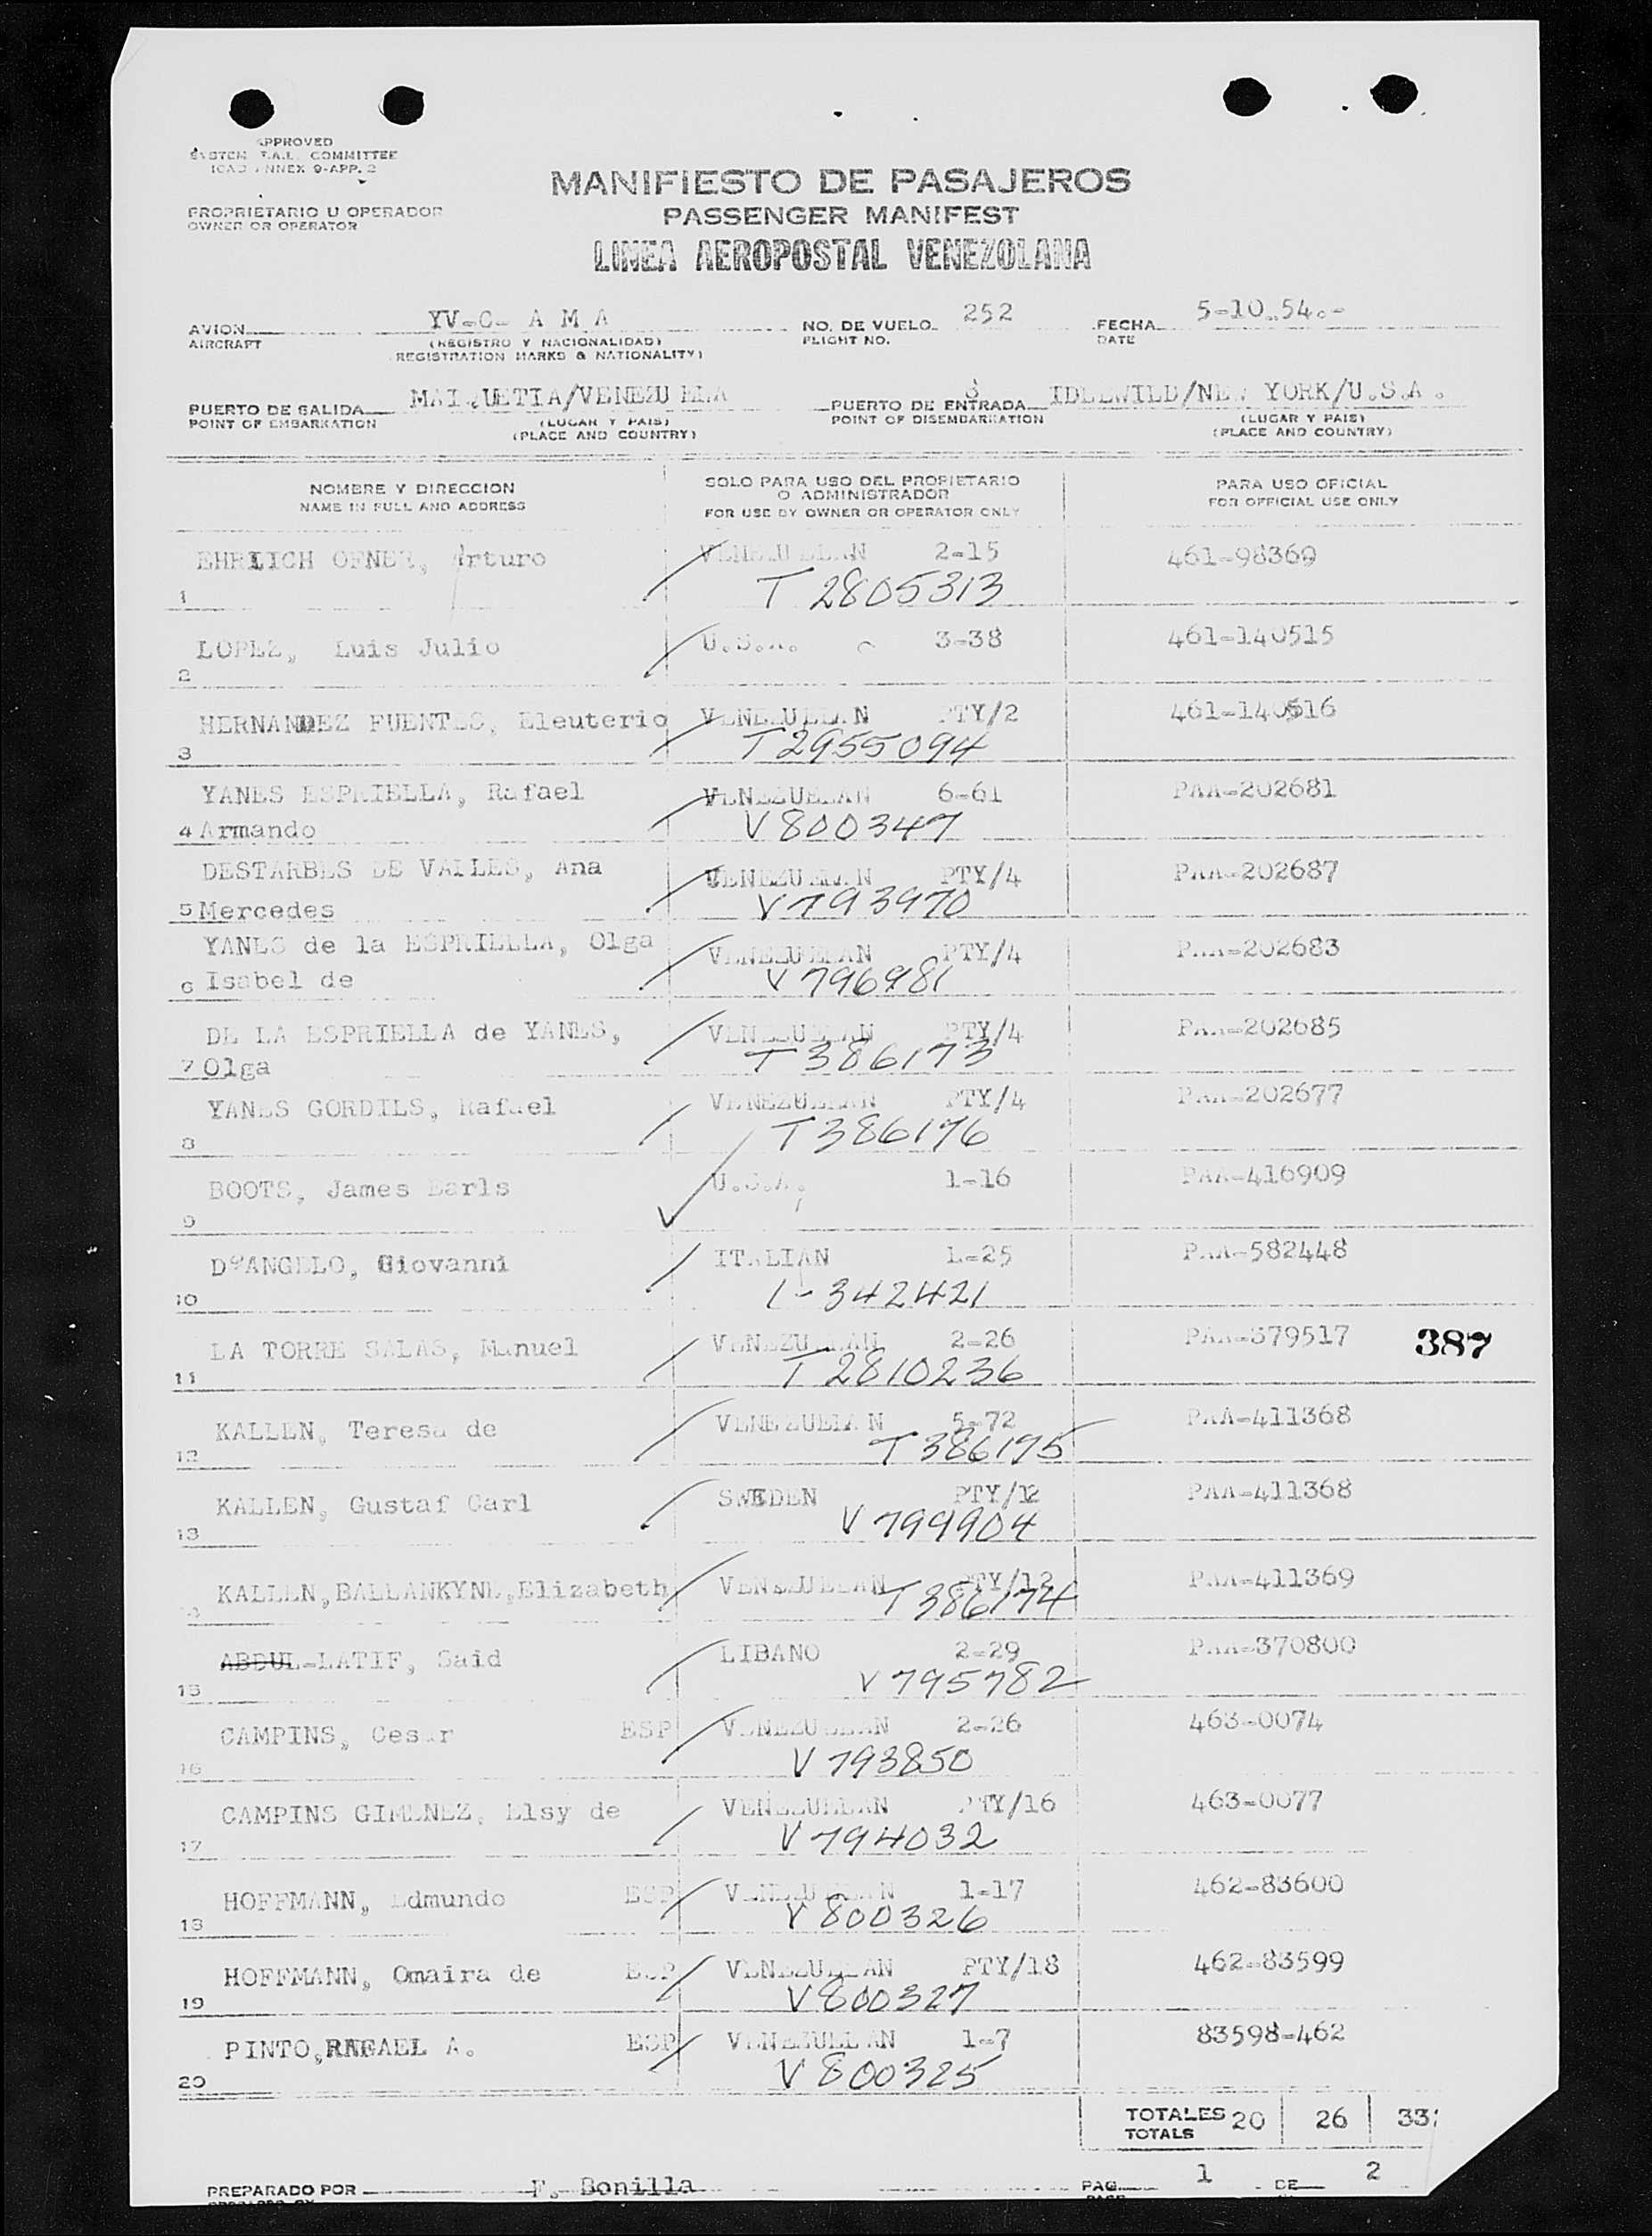 APPROVED
SYSTEM T.A.L. COMMITTEE
ICAO ANNEX 9-APP. 2
MANIFIESTO DE PASAJEROS
PROPRIETARIO U OPERADOR
OWNER OR OPERATOR
PASSENGER MANIFEST
LINEA AEROPOSTAL VENEZOLANA
AVION YV-C- A M A NO. DE VUELO 252 FECHA 5-10-54.-
AIRCRAFT (REGISTRO Y NACIONALIDAD) FLIGHT NO. DATE
REGISTRATION MARKS & NATIONALITY)
PUERTO DE SALIDA MAIQUETIA/VENEZUELA PUERTO DE ENTRADA IDLEWILD/NEW YORK/U.S.A.
POINT OF EMBARKATION (LUGAR Y PAIS) POINT OF DISEMBARKATION (LUGAR Y PAIS)
(PLACE AND COUNTRY) (PLACE AND COUNTRY)
NOMBRE Y DIRECCION SOLO PARA USO DEL PROPIETARIO PARA USO OFICIAL
O ADMINISTRADOR
NAME IN FULL AND ADDRESS FOR USE BY OWNER OR OPERATOR ONLY FOR OFFICIAL USE ONLY
EHRLICH OFNER, Arturo VENEZUELAN 2-15 461-98369
1 T 2805313
LOPEZ, Luis Julio U.S.A. 3-38 461-140515
2
HERNANDEZ FUENTES, Eleuterio VENEZUELAN PTY/2 461-140516
3 T2955094
YANES ESPRIELLA, Rafael VENEZUELAN 6-61 PAA-202681
4 Armando V 800347
DESTARBES DE VALLES, Ana VENEZUELAN PTY/4 PAA-202687
5 Mercedes V793970
YANES de la ESPRIELLA, Olga VENEZUELAN PTY/4 PAA-202683
6 Isabel de V 796981
DE LA ESPRIELLA de YANES, VENEZUELAN PTY/4 PAA-202685
7 Olga T 386173
YANES GORDILS, Rafael VENEZUELAN PTY/4 PAA-202677
8 T386176
BOOTS, James Earls U.S.A. 1-16 PAA-416909
9
D'ANGELO, Giovanni ITALIAN 1-25 PAA-582448
10 1-342421
LA TORRE SALAS, Manuel VENEZUELAN 2-26 PAA-379517 387
11 T 2810236
KALLEN, Teresa de VENEZUELAN 5-72 PAA-411368
12 T 386175
KALLEN, Gustaf Carl SWEDEN PTY/12 PAA-411368
13 V 799904
KALLEN, BALLANKYNE, Elizabeth VENEZUELAN PTY/12 PAA-411369
T 386174
ABDUL-LATIF, Said LIBANO 2-29 PAA-370800
15 V 795782
CAMPINS, Cesar ESP VENEZUELAN 2-26 463-0074
16 V 793850
CAMPINS GIMENEZ, Elsy de VENEZUELAN PTY/16 463-0077
17 V 794032
HOFFMANN, Edmundo ESP VENEZUELAN 1-17 462-83600
18 V 800326
HOFFMANN, Omaira de ESP VENEZUELAN PTY/18 462-83599
19 V 800327
PINTO, RAFAEL A. ESP VENEZUELAN 1-7 83598-462
20 V 800325
TOTALES 20 26 33
TOTALS
PREPARADO POR F. Bonilla PAG. 1 DE 2